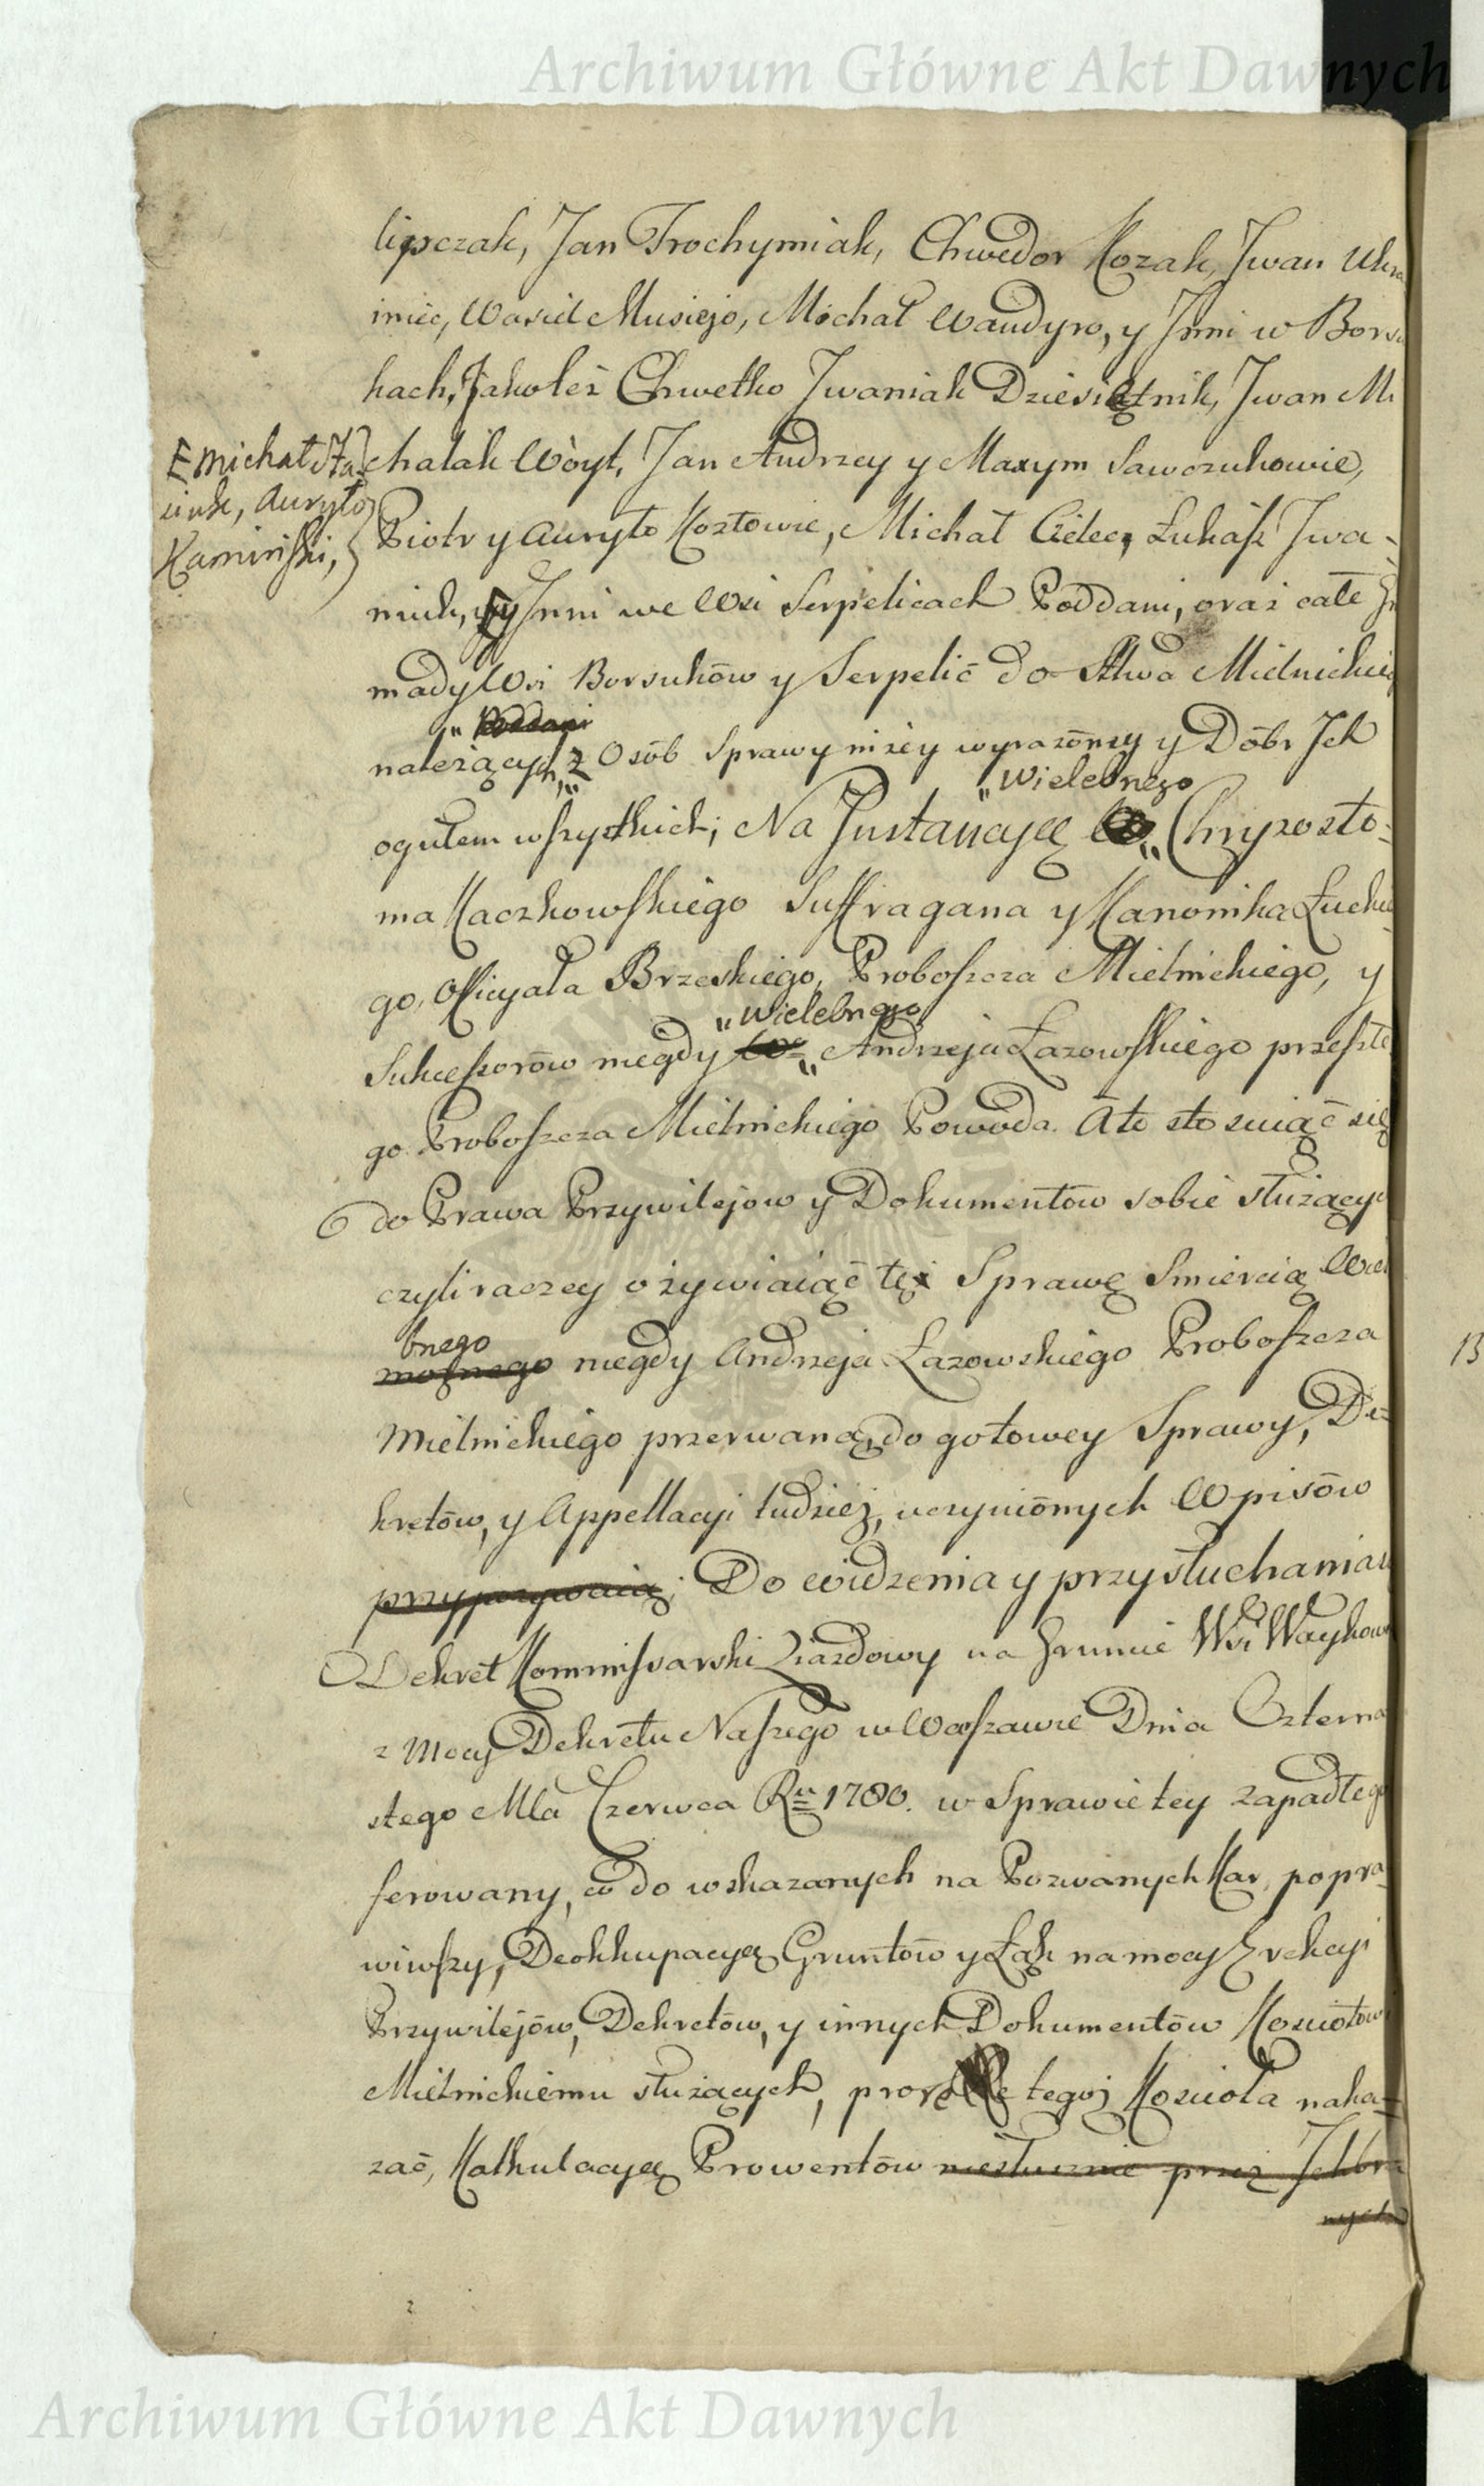 Archiwum Główne Akt Dawnych
lipczak, Jan Trochymiak, Chwedor Kozak, Jwan Ukra
iniec, Wasiel Musiejo, Michał Waudyro, y Jnni w Borsu
kach, Jakoteż Chwetko Jwaniak Dziesiątnik, Jwan Mi
chalak Wóyt, Jan Andrzey y Maxym Sawczukowie,
E Michał Ha
ciuk, Auryło
Kamiński,
Piotr y Auryło Kozłowie, Michał Cielec, Łukasz Jwa-
niuk, y Jnni we Wsi Serpelicach Poddani, oraz całe Gro
mady Wsi Borsuków y Serpelic do Sttwa Mielnickieg
Poddani
należących, z Osób Sprawy niżey wyrażóney y Dóbr Jch
ogułem wszystkich; Na Jnstancyą Wielebnego Chryzosto-
ma Kaczkowskiego Suffragana y Kanonika Łuckie
go, Officyała Brzeskiego, Proboszcza Mielnickiego, y
Sukcessorów niegdy Wielebnego Andrzeja Łazowskiego przeszłe
go Proboszcza Mielnickiego Powoda. A to stosuiąc się
do Prawa Przywilejow y Dokumentów sobie służącyc
czyli raczey ożywiaiąc tę Sprawę Smiercią Wiel
bnego możnego niegdy Andrzeja Łazowskiego Proboszcza
Mielnickiego przerwaną, do gotowey Sprawy, De-
kretów, y Appellacyi tudzież, uczyniónych Wpisów
przypozywaią; Do widzenia y przysłuchania się
Dekret Kommissarski Ziazdowy na Gruncie Wsi Waykow
z mocy Dekretu Naszego w Warszawie Dnia Czterna
stego Mca Czerwca Ru 1780. w Sprawie tey zapadłego
ferowany, co do wskazanych na Pozwanych Kar, popra-
wiwszy, Deokkupacyą Gruntów y Łąk na mocy Erekcyi
Przywilejów, Dekretów, y innych Dokumentów Kosciołow
Mielnickiemu służących, tegoż Koscioła naka-
zać, Kalkulacyą Prowentów niesłusznie przez Jchbr
nych
Archiwum Główne Akt Dawnych